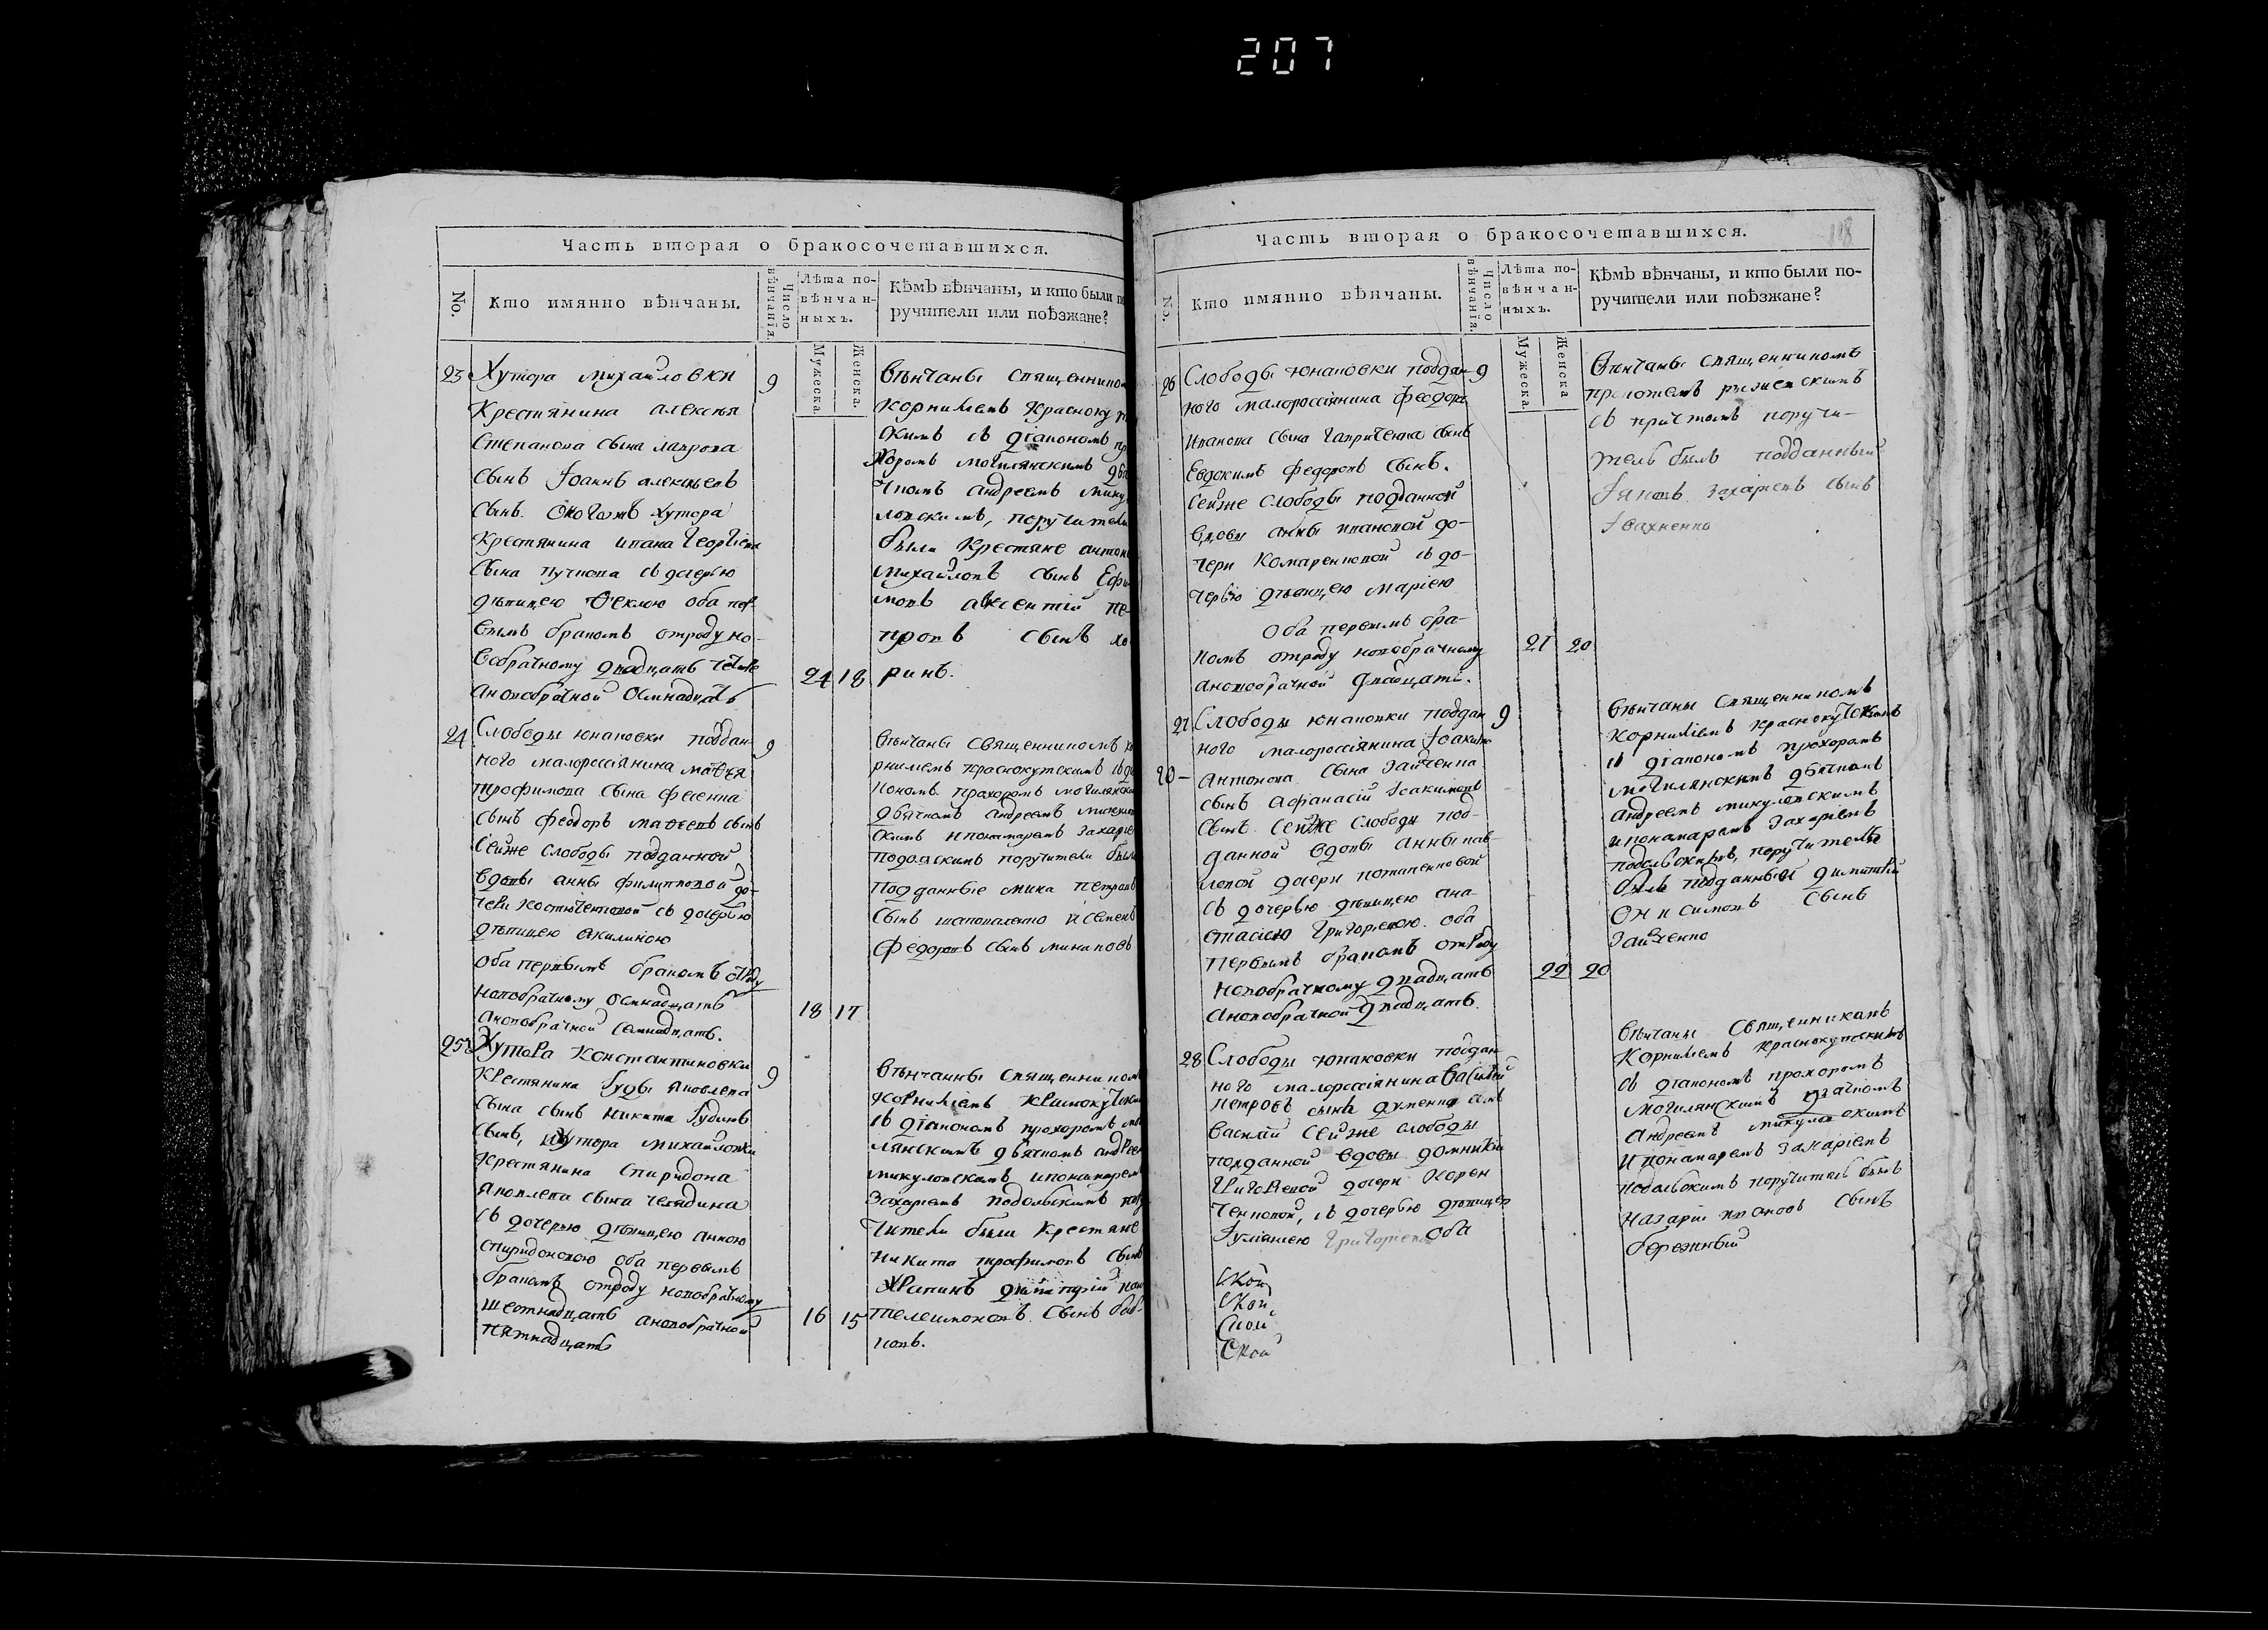 207
Часть вторая о бракосочетавшихся.
No.
Кто имянно вѣнчаны.
Число вѣнчанія.
Лѣта по-
вѣнчан-
ныхъ.
Мужеска.
Женска.
Кѣмъ вѣнчаны, и кто были по
ручители или поѣзжане?
23 Хутора михайловки 9
Крестянина алексѣя
Степанова сына лаврова
сынъ Іоаннъ алексѣевъ
сынъ. хутора
Крестянина ивана георгіева
сына пучкова съ дочерью
дѣвицею Ѳеклою оба пер
вымъ бракомъ отроду но-
вобрачному двадцать четыре
ановобрачной осмнадцать
24 18
вѣнчаны священником
корниліемъ Краснокут
скимъ съ діакономъ пр
хоромъ могилянскимъ дья
чкомъ андреемъ мику
ловскимъ, поручители
были Крестяне антон
михайловъ сынъ Ефи
мовъ авксентій пе-
тровъ сынъ хо
ринъ.
24 Слободы юнаковки поддан 9
ного малороссіянина матѳея
трофимова сына фесенка
сынъ феодоръ матѳеевъ сынъ
сейже слободы подданной
вдовы анны филипповой до-
чери костюченковой съ дочерью
дѣвицею акилиною
оба первымъ бракомъ отроду
новобрачному осмнадцать
ановобрачной семнадцать.
18 17
вѣнчаны священникомъ ко
рниліемъ краснокутскимъ съ діа
кономъ прохоромъ могилянски
дьячкомъ андреемъ микулов
скимъ ипонамаремъ захаріе
подолскимъ поручители были
подданные мика петровъ
сынъ шаповаленко и семенъ
федоровъ сынъ минаковъ
25 Хутора Константиновки 9
крестянина Іуды яковлева
сына сынъ никита Іудинъ
сынъ, хутора михайловки
крестянина спиридона
яковлева сына челядина
съ дочерью дѣвицею анною
спиридоновою оба первымъ
бракомъ отроду новобрачному
шестнадцать ановобрачной
пятнадцать
16 15
вѣнчанны священником
корниліемъ краснокутски
съ діакономъ прохоромъ мо
лянскимъ дьячкомъ андрее
микуловскимъ ипонамарем
Захаріемъ подольскимъ пору
чители были крестяне
никита трофимовъ сынъ
димитрій пан
телеимоновъ сынъ
ковъ.
Часть вторая о бракосочетавшихся.
118
No.
Кто имянно вѣнчаны.
Число вѣнчанія.
Лѣта по-
вѣнчан-
ныхъ.
Мужеска.
Женска
Кѣмъ вѣнчаны, и кто были по-
ручители или поѣзжане?
26 Слободы юнаковки поддан 9
ного малороссіянина феодора
иванова сына гавриченка сынъ
Евдокимъ федоровъ сынъ.
Сейже слободы подданной
вдовы анны ивановой до-
чери комаренковой съ до-
черью дѣвицею маріею
Оба первымъ бра-
комъ отроду новобрачному
ановобрачной двадцать.
21 20
Вѣнчаны священникомъ
съ причтомъ поручи-
тель былъ подданный
Іяковъ захаріевъ сынъ
Івахненко
27 Слободы юнаковки поддан 9
ного малороссіянина Іоакима
20 - антонова сына зайченка
сынъ афанасій Іоакимовъ
сынъ. сейже слободы под-
данной вдовы анны пав-
ловой дочери потапенковой
съ дочерью дѣвицею ана-
стасіею григоріевою. оба
первымъ бракомъ отроду
новобрачному двадцать
ановобрачной двадцать.
22 20
вѣнчаны священникомъ
корниліемъ краснокутскимъ
съ діакономъ прохоромъ
могилянскимъ дьячкомъ
андреемъ микуловскимъ
ипонамаремъ захаріемъ
подольскимъ, поручитель
былъ подданный димитрій
онисимовъ сынъ
зайченко
28 Слободы юнаковки поддан
ного малороссіянина василій
петровъ сынъ сынъ
василій сейже слободы
подданной вдовы домникіи
дочери корен
ченковой, съ дочерью дѣвицею
Іуліаніею григоріевою оба
ской
ской
ской
ской
вѣнчаны священникамъ
корниліемъ краснокутскимъ
съ діакономъ прохоромъ
могилянскимъ дьячкомъ
андреемъ микуловскимъ
и понамаремъ захаріемъ
подольскимъ поручитель былъ
назарій ивановъ сынъ
бережный